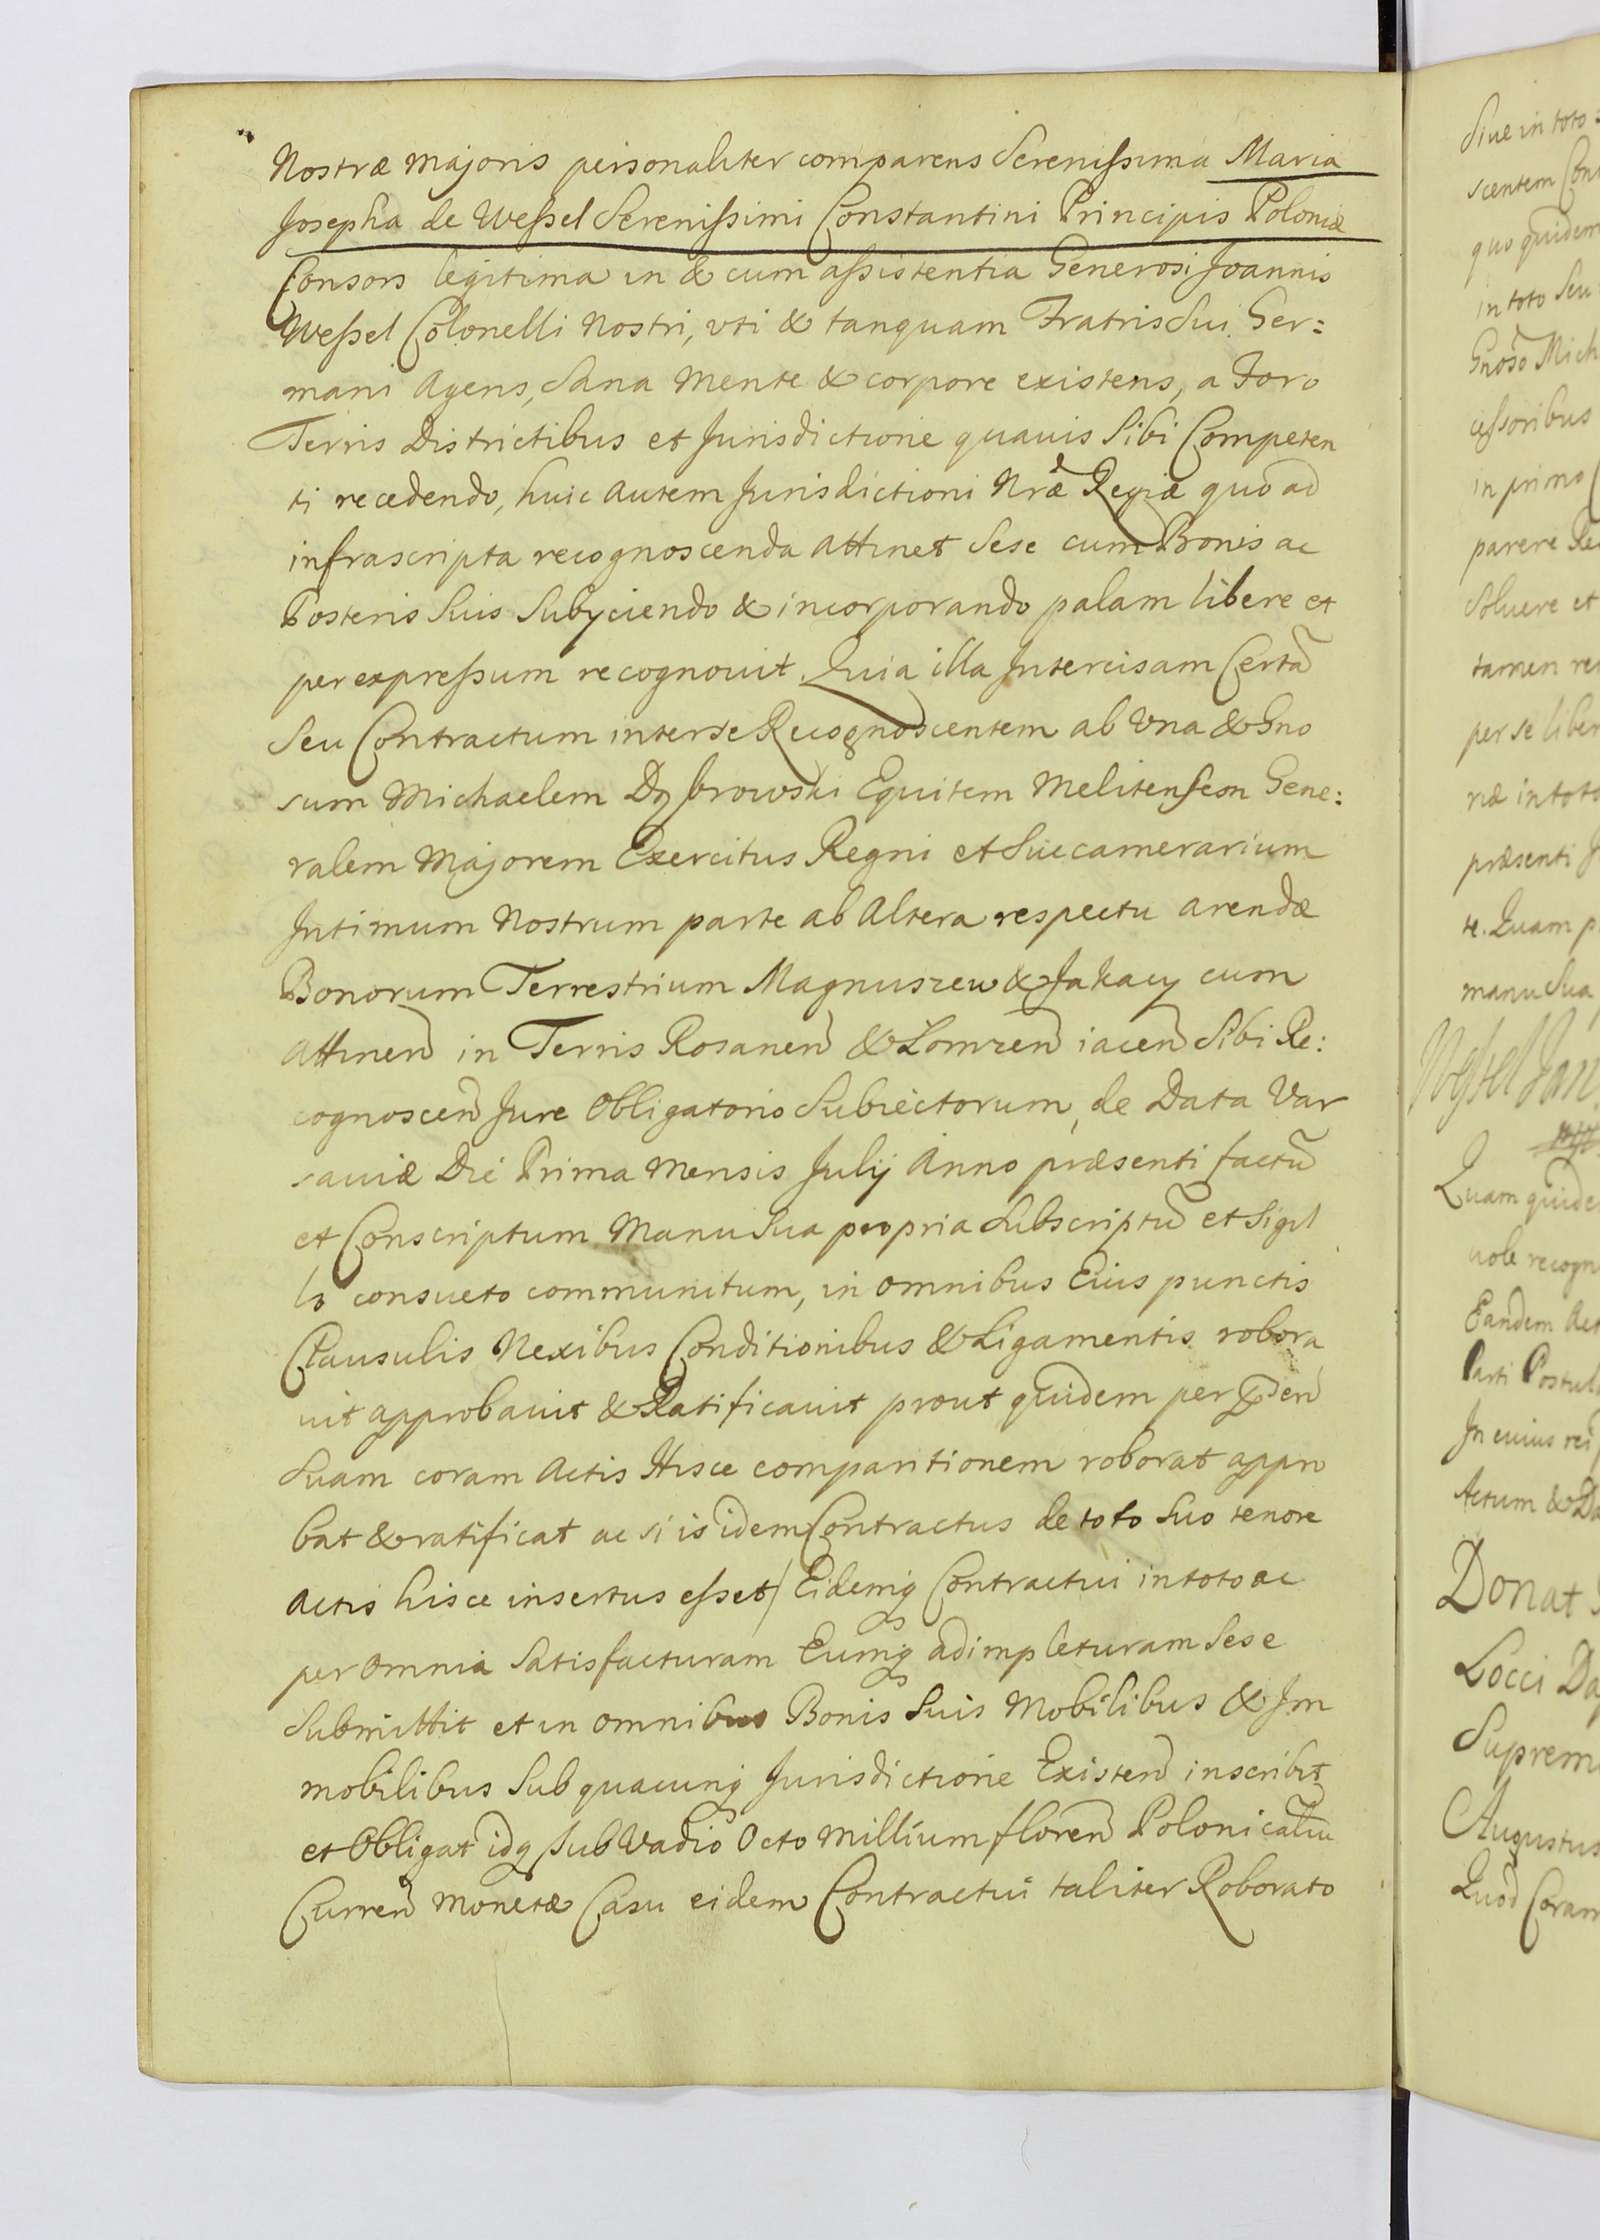 Nostræ majoris personaliter comparens Serenissima Maria
Josepha de Wessel Serenissimi Constantini Principis Poloniæ
Consors legitima in & cum assistentia Generosi Joannis
Wessel Colonelli Nostri, vti & tanquam Fratris Sui Ger=
mani Agens, Sana Mente & corpore existens, a Foro
Terris Districtibus et Jurisdictione quauis Sibi Competen
ti recedendo, huic autem Jurisdictioni Nræ Regiæ quo ad
infrascripta recognoscenda attinet Sese cum Bonis ac
Posteris Suis Subyciendo & incorporando palam libere et
per expressum recognouit. Quia illa Intercisam Certã
Seu Contractum inter se Recognoscentem ab Vna & Gno
sum Michaelem Dąbrowski Equitem Melitensem Gene:
ralem Majorem Exercitus Regni et Succamerarium
Intimum Nostrum parte ab Altera respectu arendæ
Bonorum Terrestrium Magnuszew & Jakacy cum
Attinen in Terris Rosanen & Lomzen iacen Sibi Re:
cognoscen Jure Obligatorio Subiectorum, de Data Var
sauiæ Die Prima Mensis Julij Anno præsenti factũ
et Conscriptum Manu Sua propria Subscriptũ et Sigil
lo consueto communitum, in omnibus Eius punctis
Clausulis Nexibus Conditionibus & Ligamentis robora
uit approbauit & Ratificauit prout quidem per
Suam coram Actis Hisce comparitionem roborat appro
bat & ratificat ac si is idem Contractus de toto Suo tenore
Actis hisce insertus esset/ Eidemq Contractui in toto ac
per omnia Satisfacturam Eumq adimpleturam Sese
Submittit et in omnibus Bonis Suis Mobilibus & Im
mobilibus Sub quacunq Jurisdictione Existen inscribit
et Obligat idq Sub Vadio Octo Millium floren Polonicaliũ
Curren Monetæ Casu eidem Contractui taliter Roborato
Siue in toto
scentem
quo quidem
in toto Seu
Gnoso Mich
cessoribus
in primo
parere Re
Soluere et
tamen re
per se liber
ræ in toto
præsenti J
te. Quam p
manu Sua
Wessel Jan
Quam quide
uole recogn
Eandem Act
Parti Postul
In cuius rei
Actum & Da
Donat
Locci Da
Suprem
Augustus
Quod Coram